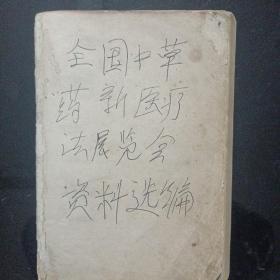 全国中草
药新医疗
法展览会
资料选编